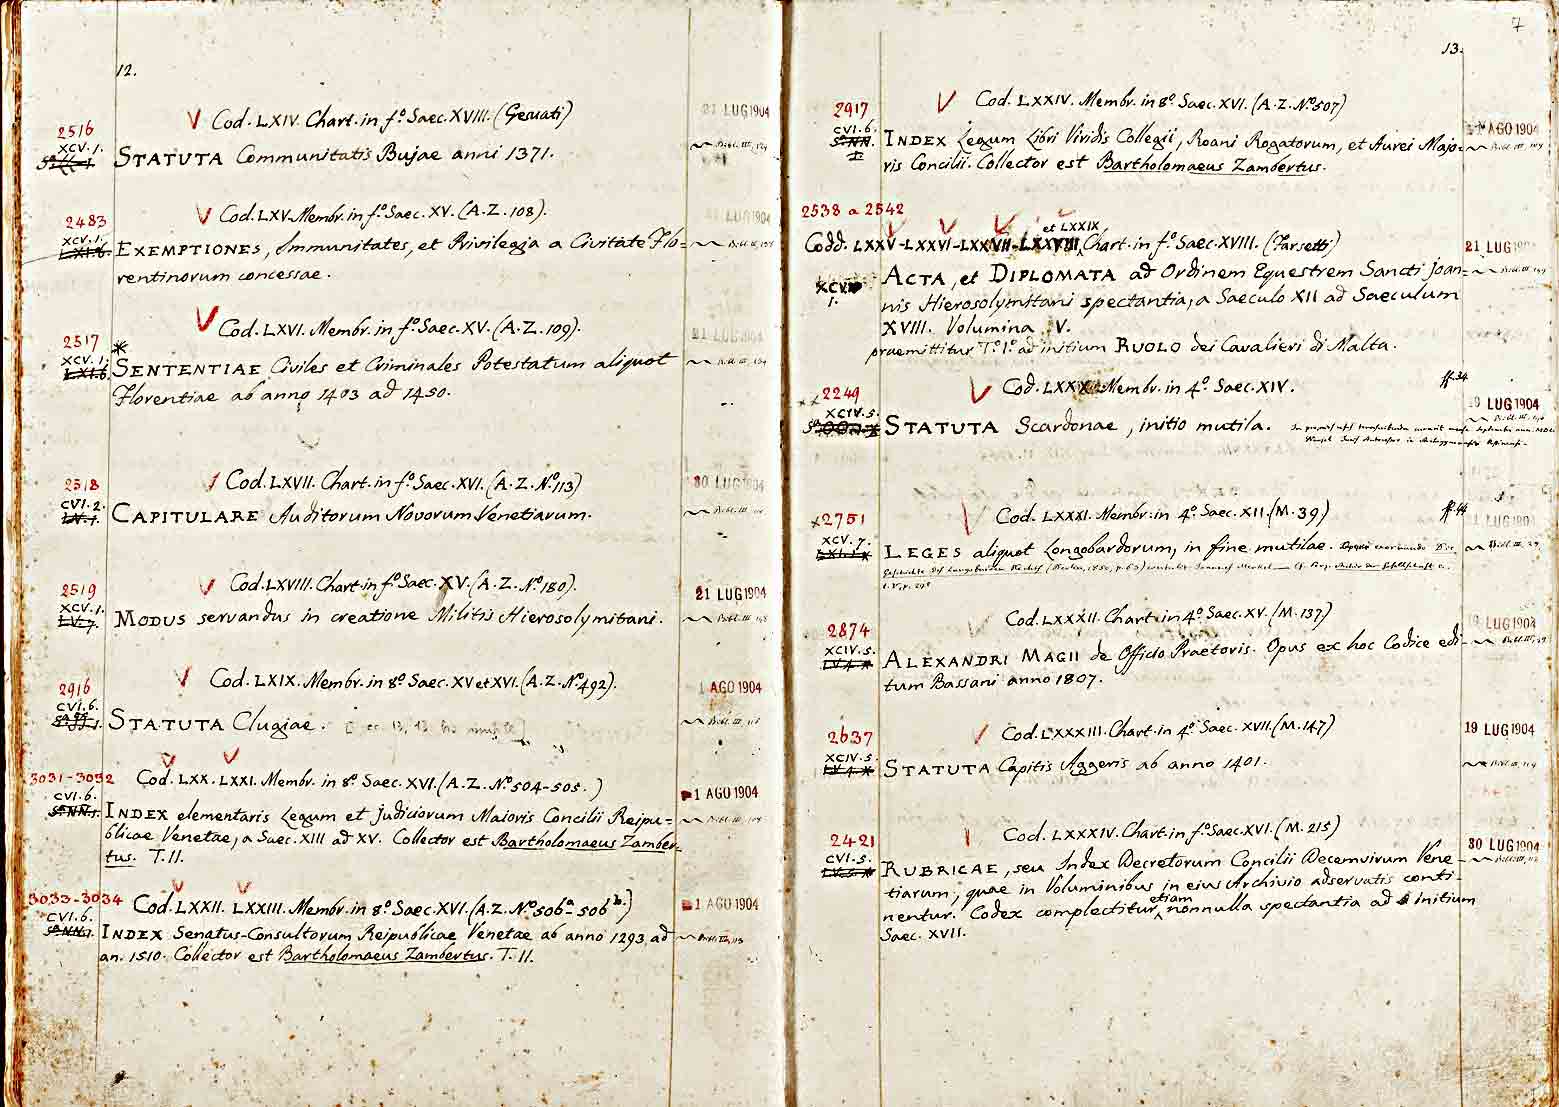 12.
V Cod. LXIV. Chart. in f.º Saec. XVIII. (Gesuati)
21 LUG 1904
2516
XCV. 1.
STATUTA Communitatis Bujae anni 1371.
V Cod. LXV. Membr. in f.º Saec. XV. (A. Z. 108).
LUG 1904
2483
XCV. 1.
EXEMPTIONES, Immunitates, et Privilegia a Civitate Flo=
rentinorum concessae.
V Cod. LXVI. Membr. in f.º Saec. XV. (A. Z. 109).
21 LUG 1904
2517
XCV. 1.
SENTENTIAE Civiles et Criminales Potestatum aliquot
Florentiae ab anno 1403 ad 1450.
Cod. LXVII. Chart. in f.º Saec. XVI. (A. Z. Nº. 113)
30 LUG 1904
2518
CVI. 2.
CAPITULARE Auditorum Novorum Venetiarum.
V Cod. LXVIII. Chart. in f.º Saec. XV. (A. Z. Nº. 180).
21 LUG 1904
2519
XCV. 1.
MODUS servandus in creatione Militis Hierosolymitani.
V Cod. LXIX. Membr. in 8º. Saec. XV et XVI. (A. Z. Nº. 492).
1 AGO 1904
2916
CVI. 6.
STATUTA Clugiae.
V V
3031-3032 Cod. LXX. LXXI. Membr. in 8º. Saec. XVI. (A. Z. Nº. 504-505.)
1 AGO 1904
CVI. 6.
INDEX elementaris Legum et judiciorum Maioris Concilii Reipu=
blicae Venetae, a Saec. XIII ad XV. Collector est Bartholomaeus Zamber=
tus. T. II.
V V
3033-3034 Cod. LXXII. LXXIII. Membr. in 8º. Saec. XVI. (A. Z. Nº. 506ª-506ᵇ.)
1 AGO 1904
CVI. 6.
INDEX Senatus-Consultorum Reipublicae Venetae ab anno 1293 ad
an. 1510. Collector est Bartholomaeus Zambertus. T. II.
7
13.
V Cod. LXXIV. Membr. in 8º. Saec. XVI. (A. Z. Nº. 507)
AGO 1904
2917
CVI. 6.
INDEX Legum Libri Viridis Collegii, Roani Rogatorum, et Aurei Majo=
ris Concilii. Collector est Bartholomaeus Zambertus.
2538 a 2542
et LXXIX,
Codd. LXXV-LXXVI-LXXVII-LXXVIII, Chart. in f.º Saec. XVIII. (Farsetti)
21 LUG 1904
XCV.
1.
ACTA, et DIPLOMATA ad Ordinem Equestrem Sancti Joan=
nis Hierosolymitani spectantia, a Saeculo XII ad Saeculum
XVIII. Volumina V.
praemittitur T.º I.º ad initium RUOLO dei Cavalieri di Malta.
V Cod. LXXX. Membr. in 4º. Saec. XIV.
ff. 34
19 LUG 1904
2249
XCIV. 5.
STATUTA Scardonae, initio mutila.
Cod. LXXXI. Membr. in 4º. Saec. XII. (M. 39)
ff. 44
LUG 1904
2751
XCV. 7.
LEGES aliquot Longobardorum, in fine mutilae.
Cod. LXXXII. Chart. in 4º. Saec. XV. (M. 137)
19 LUG 1904
2874
XCIV. 5.
ALEXANDRI MAGII de Officio Praetoris. Opus ex hoc Codice edi=
tum Bassani anno 1807.
Cod. LXXXIII. Chart. in 4º. Saec. XVII. (M. 147)
19 LUG 1904
2637
XCIV. 5
STATUTA Capitis Aggeris ab anno 1401.
Cod. LXXXIV. Chart. in f.º Saec. XVI. (M. 215)
30 LUG 1904
2421
CVI. 5.
RUBRICAE, seu Index Decretorum Concilii Decemvirum Vene=
tiarum, quae in Voluminibus in eius Archivio adservatis conti-
etiam
nentur. Codex complectitur nonnulla spectantia ad initium
Saec. XVII.